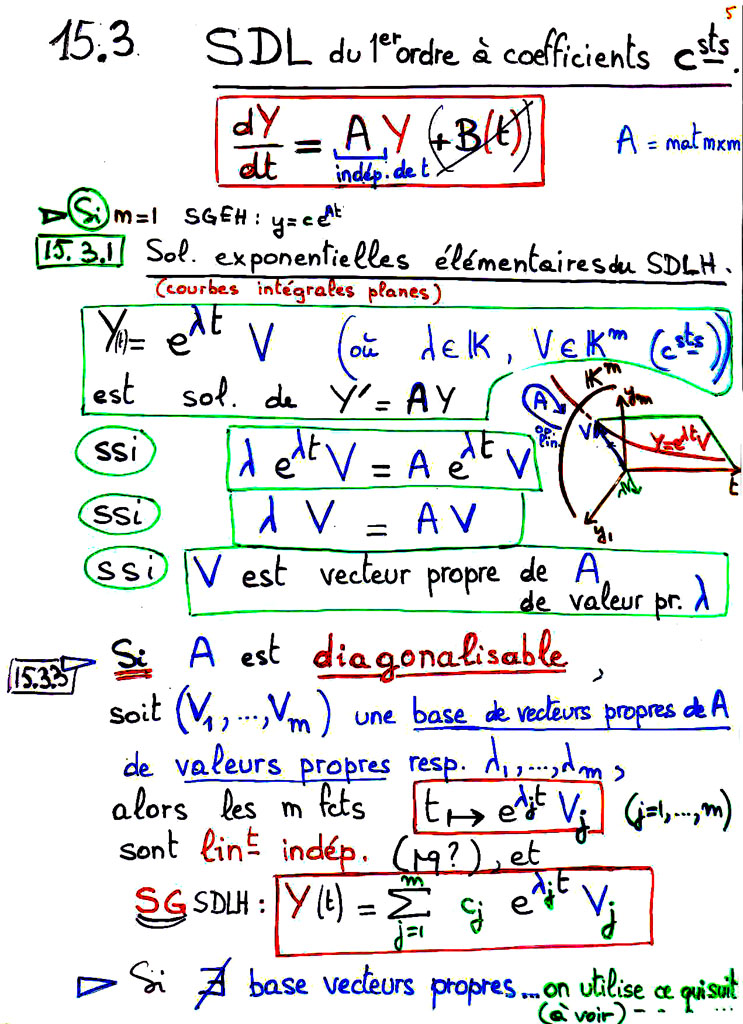 5
15.3 SDL du 1er ordre à coefficients csts.
dY/dt = A Y (+B(t)) A = mat m×m
indép. de t
▷ Si m=1 SGEH : y = c e^{At}
15.3.1 Sol. exponentielles élémentaires du SDLH.
(courbes intégrales planes)
Y(t) = e^{λt} V (où λ ∈ K, V ∈ K^m (csts))
est sol. de Y' = A Y
K^m
y_m
A
op. lin.
V
Y = e^{λt} V
λV
t
y_1
ssi λ e^{λt} V = A e^{λt} V
ssi λ V = A V
ssi V est vecteur propre de A
de valeur pr. λ
15.3.3 ▷ Si A est diagonalisable,
soit (V_1, ..., V_m) une base de vecteurs propres de A
de valeurs propres resp. λ_1, ..., λ_m,
alors les m fcts t ↦ e^{λ_j t} V_j (j=1, ..., m)
sont lint indép. (pq?), et
SG SDLH : Y(t) = ∑_{j=1}^{m} c_j e^{λ_j t} V_j
▷ Si ∄ base vecteurs propres... on utilise ce qui suit
(à voir) - - - ...